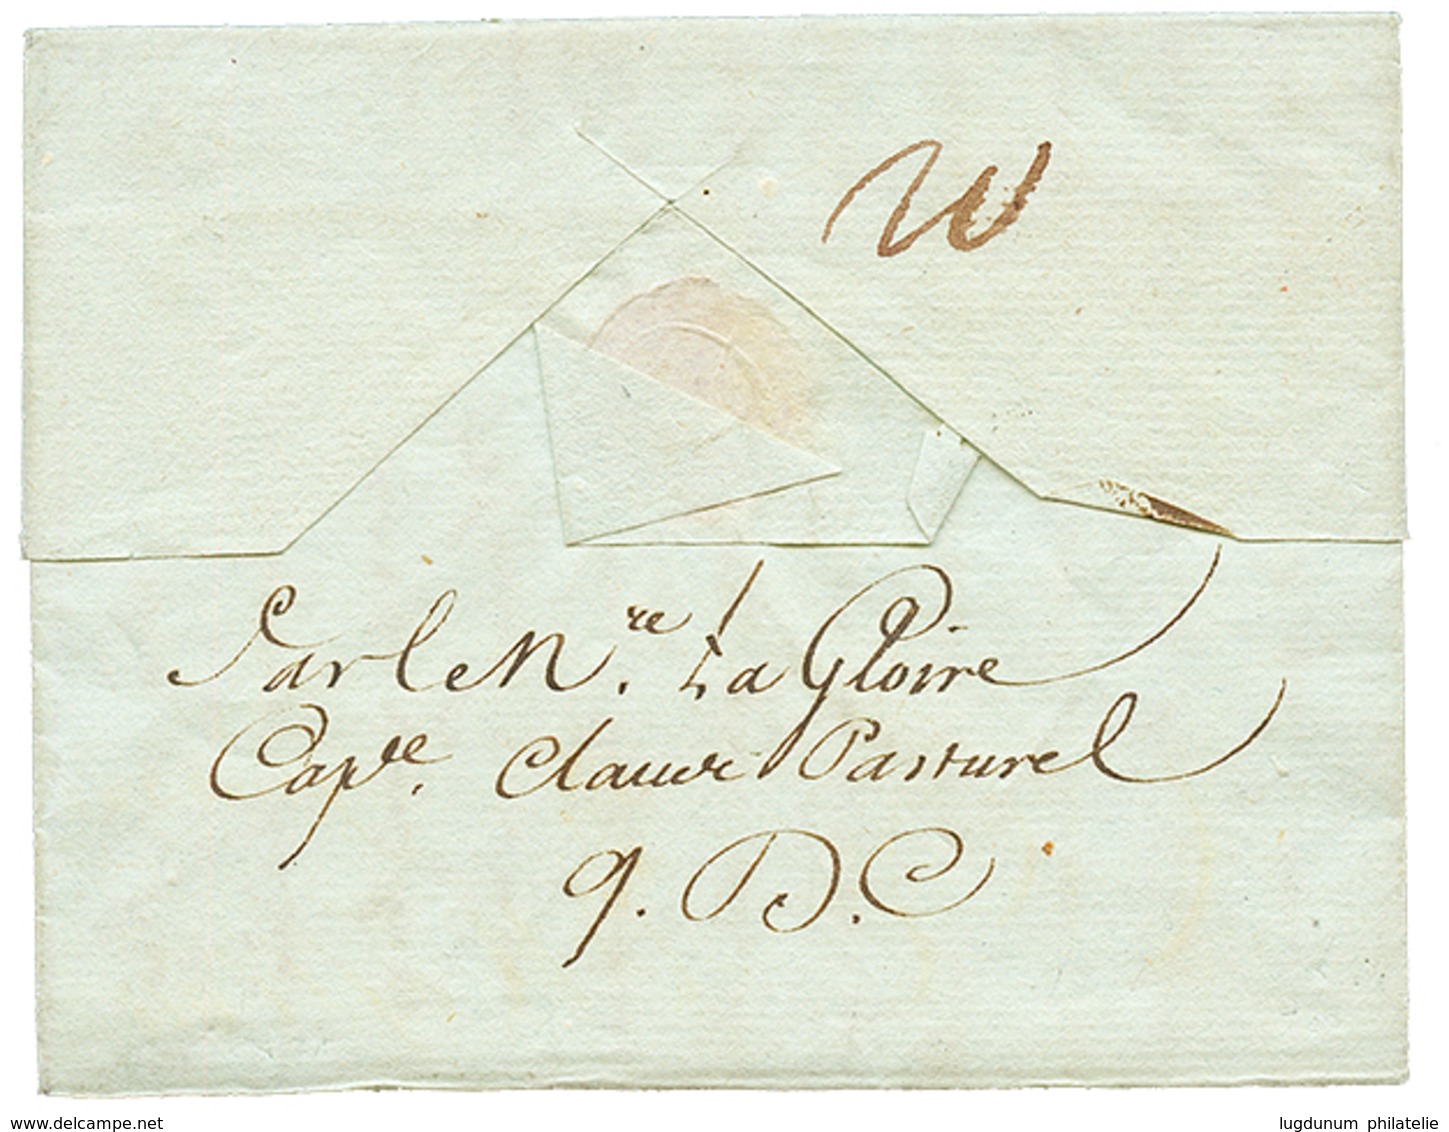 Par le N.re La Gloire
Cap.ne Claude Pasturel
q. D. C
www.delcampe.net
lugdunum philatelie